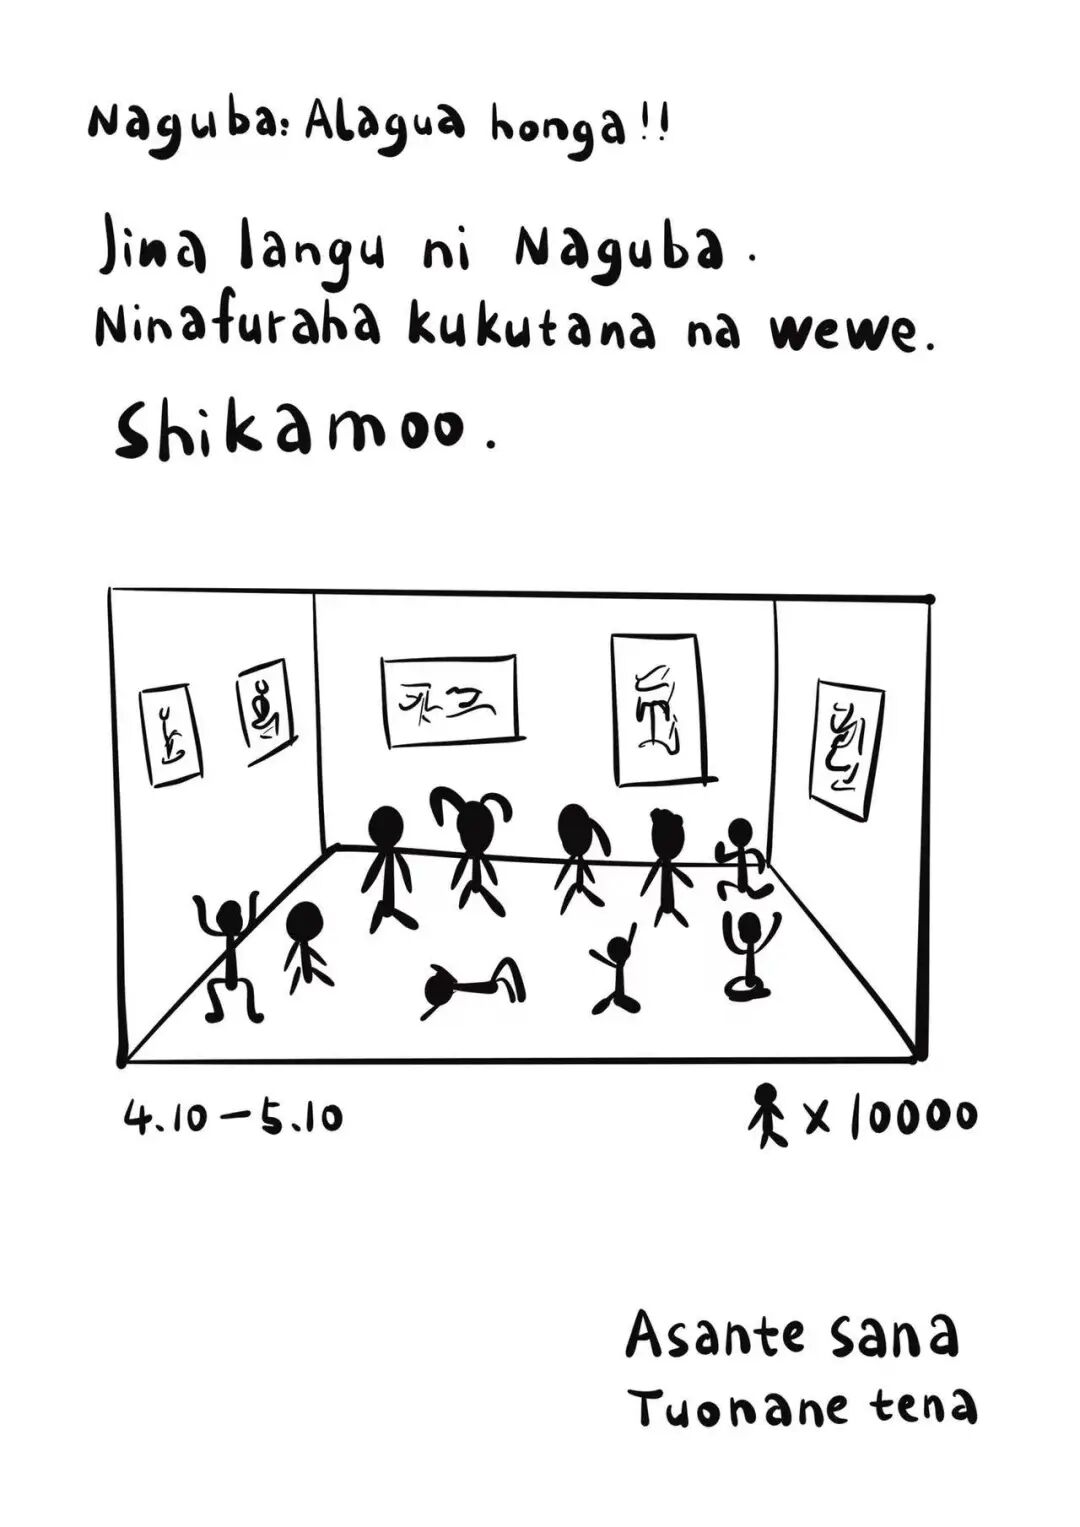 Naguba: Alagua honga!!
Jina langu ni Naguba.
Ninafuraha kukutana na wewe.
Shikamoo.
4.10-5.10
x 10000
Asante sana
Tuonane tena